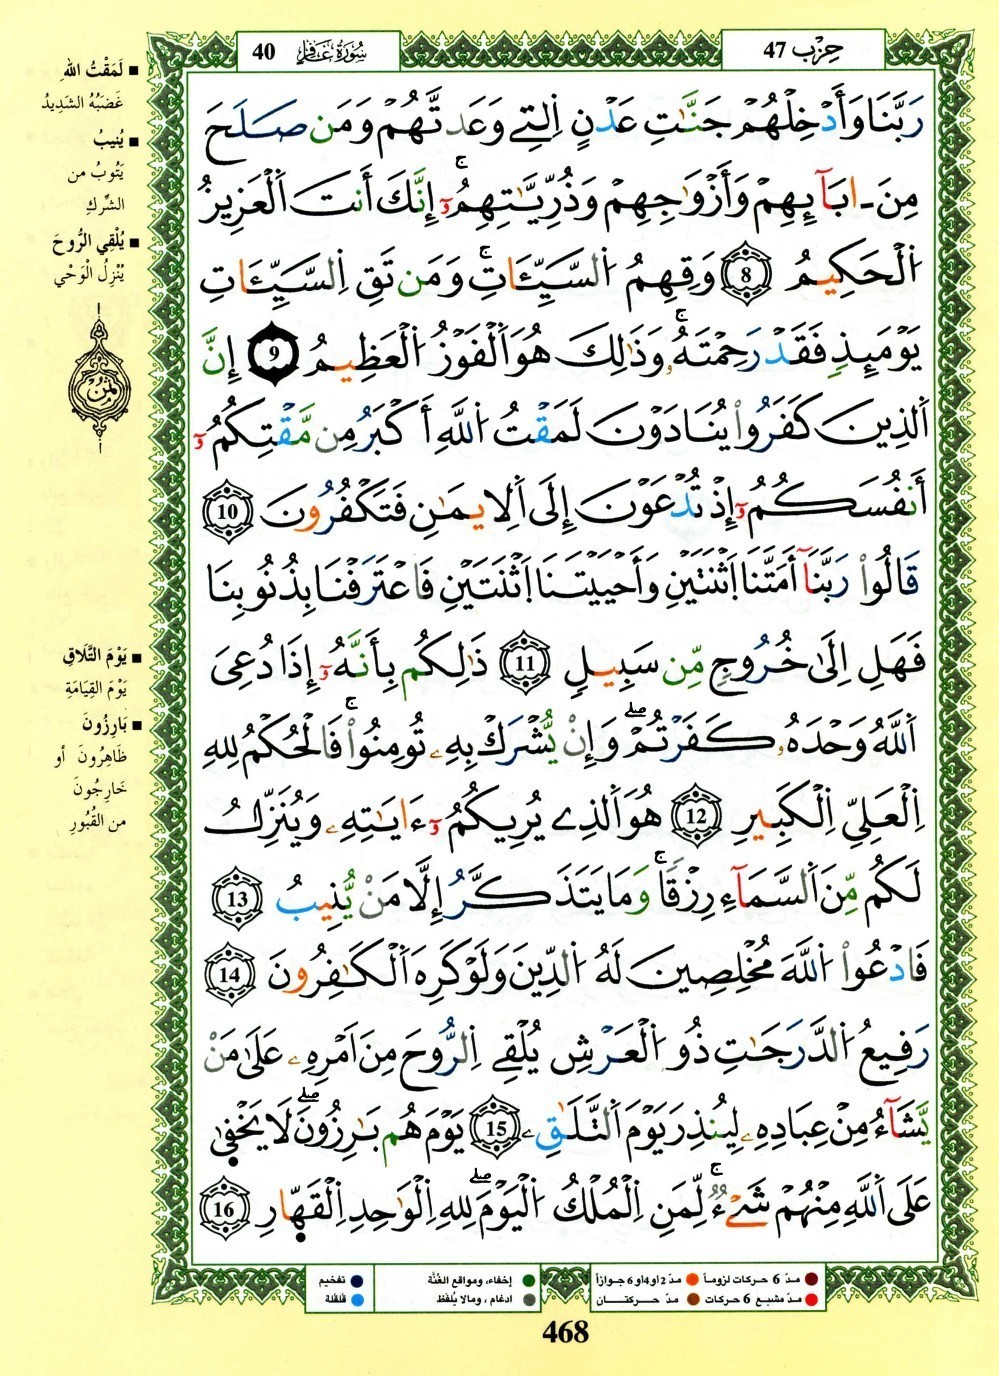 سُورَةُ غَافِر 40
حِزْب 47
رَبَّنَا وَأَدْخِلْهُمْ جَنَّٰتِ عَدْنٍ اِ۬لتِے وَعَدتَّهُمْ وَمَن صَلَحَ
مِنَ ـ ابَآئِهِمْ وَأَزْوَٰجِهِمْ وَذُرِّيَّٰتِهِمُۥٓۚ إِنَّكَ أَنتَ اَ۬لْعَزِيزُ
اُ۬لْحَكِيمُ 8 وَقِهِمُ اُ۬لسَّيِّـَٔاتِۚ وَمَن تَقِ اِ۬لسَّيِّـَٔاتِ
يَوْمَئِذٖ فَقَدْ رَحِمْتَهُۥۚ وَذَٰلِكَ هُوَ اَ۬لْفَوْزُ اُ۬لْعَظِيمُ 9 إِنَّ
اَ۬لذِينَ كَفَرُواْ يُنَادَوْنَ لَمَقْتُ اُ۬للَّهِ أَكْبَرُ مِن مَّقْتِكُمُۥٓ
أَنفُسَكُمُۥٓ إِذْ تُدْعَوْنَ إِلَى اَ۬لِايمَٰنِ فَتَكْفُرُونَ 10
قَالُواْ رَبَّنَآ أَمَتَّنَا اَ۪ثْنَتَيْنِ وَأَحْيَيْتَنَا اَ۪ثْنَتَيْنِ فَاعْتَرَفْنَا بِذُنُوبِنَا
فَهَلِ اِلَىٰ خُرُوجٖ مِّن سَبِيلٖ 11 ذَٰلِكُم بِأَنَّهُۥٓ إِذَا دُعِيَ
اَ۬للَّهُ وَحْدَهُۥ كَفَرْتُمْۖ وَإِنْ يُّشْرَكْ بِهِۦ تُومِنُواْۚ فَالْحُكْمُ لِلهِ
اِ۬لْعَلِيِّ اِ۬لْكَبِيرِ 12 هُوَ اَ۬لذِے يُرِيكُمُۥٓ ءَايَٰتِهِۦ وَيُنَزِّلُ
لَكُم مِّنَ اَ۬لسَّمَآءِ رِزْقاٗۚ وَمَا يَتَذَكَّرُ إِلَّا مَنْ يُّنِيبُ 13
فَادْعُواْ اُ۬للَّهَ مُخْلِصِينَ لَهُ اُ۬لدِّينَ وَلَوْ كَرِهَ اَ۬لْكَٰفِرُونَ 14
رَفِيعُ اُ۬لدَّرَجَٰتِ ذُو اُ۬لْعَرْشِ يُلْقِے اِ۬لرُّوحَ مِنَ اَمْرِهِۦ عَلَىٰ مَنْ
يَّشَآءُ مِنْ عِبَادِهِۦ لِيُنذِرَ يَوْمَ اَ۬لتَّلَٰقِۦ 15 يَوْمَ هُم بَٰرِزُونَۖ لَا يَخْفَىٰ
عَلَى اَ۬للَّهِ مِنْهُمْ شَےْءٞۚ لِّمَنِ اِ۬لْمُلْكُ اُ۬لْيَوْمَۖ لِلهِ اِ۬لْوَٰحِدِ اِ۬لْقَهّ۪ارِ 16
■ لَمَقْتُ الله
غَضَبُهُ الشَدِيدُ
■ يُنيبُ
يَتُوبُ من
الشِّركِ
■ يُلْقِي الرُّوحَ
يُنْزِلُ الْوَحْي
ثُمُن
■ يَوْمَ التَّلَاقِ
يَوْمَ القِيَامَةِ
■ بَارِزُونَ
ظَاهِرُونَ أو
خَارِجُونَ
من القُبُورِ
مدّ 6 حركات لزوماً
مدّ 2 أو 4 أو 6 جوازاً
إخفاء، ومواقع الغُنَّة
تفخيم
مدّ مشبع 6 حركات
مدّ حركتان
ادغام ، ومالا يُلفظ
قلقلة
468